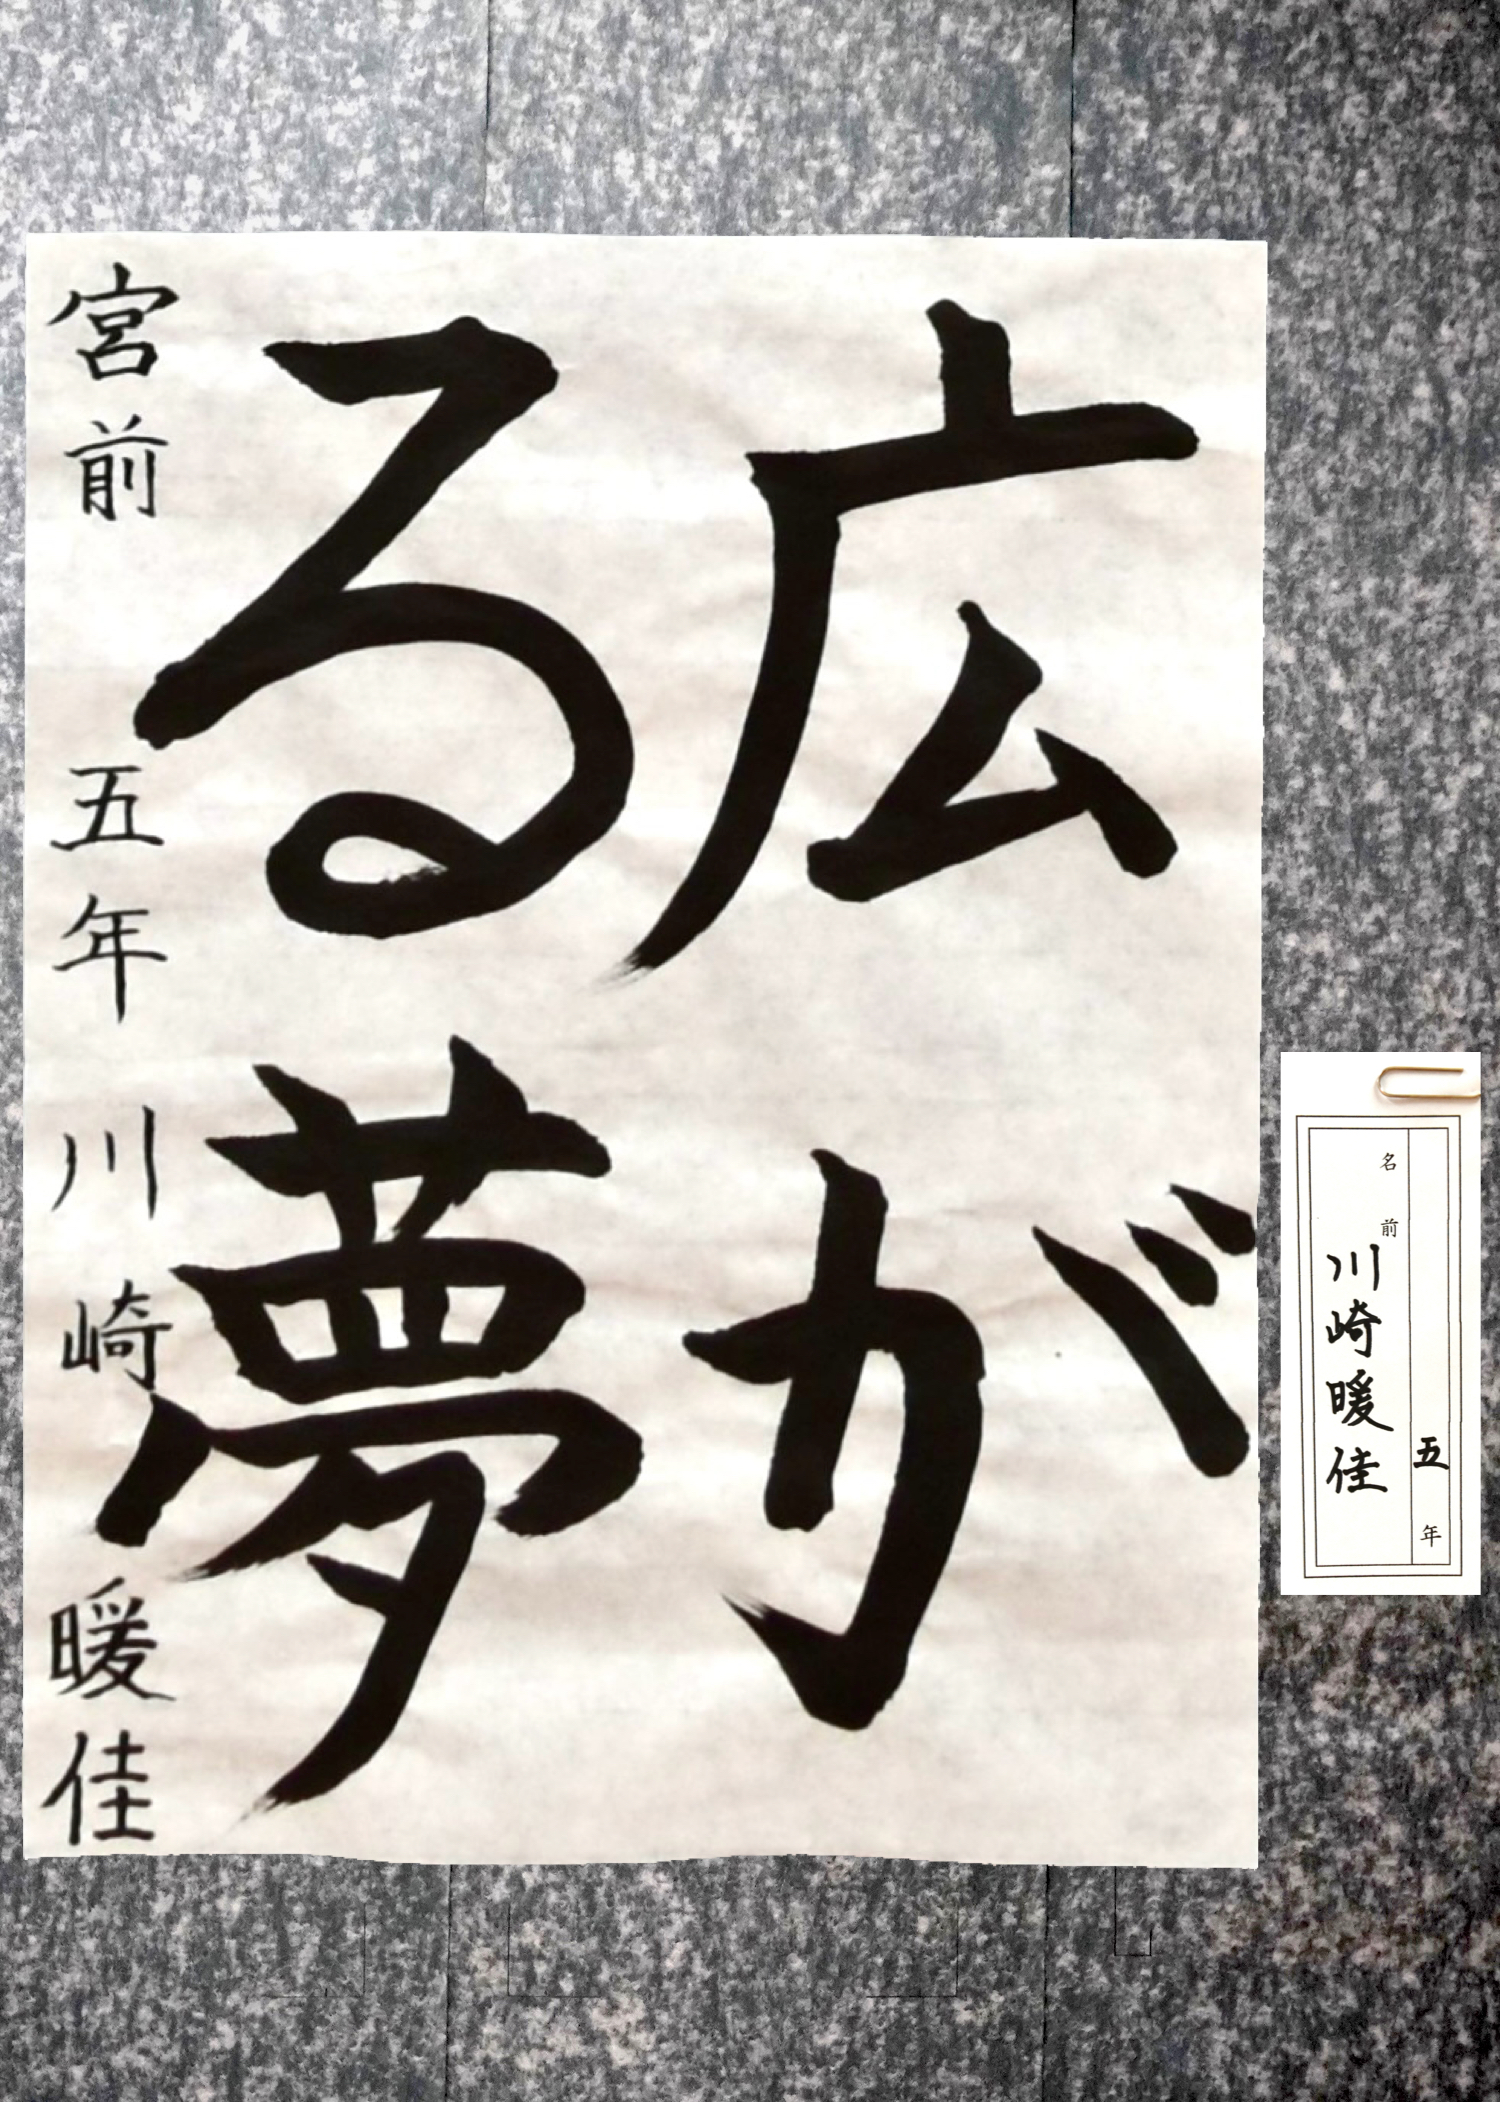 広が
る夢
宮前 五年 川崎暖佳
五年
名前 川崎暖佳